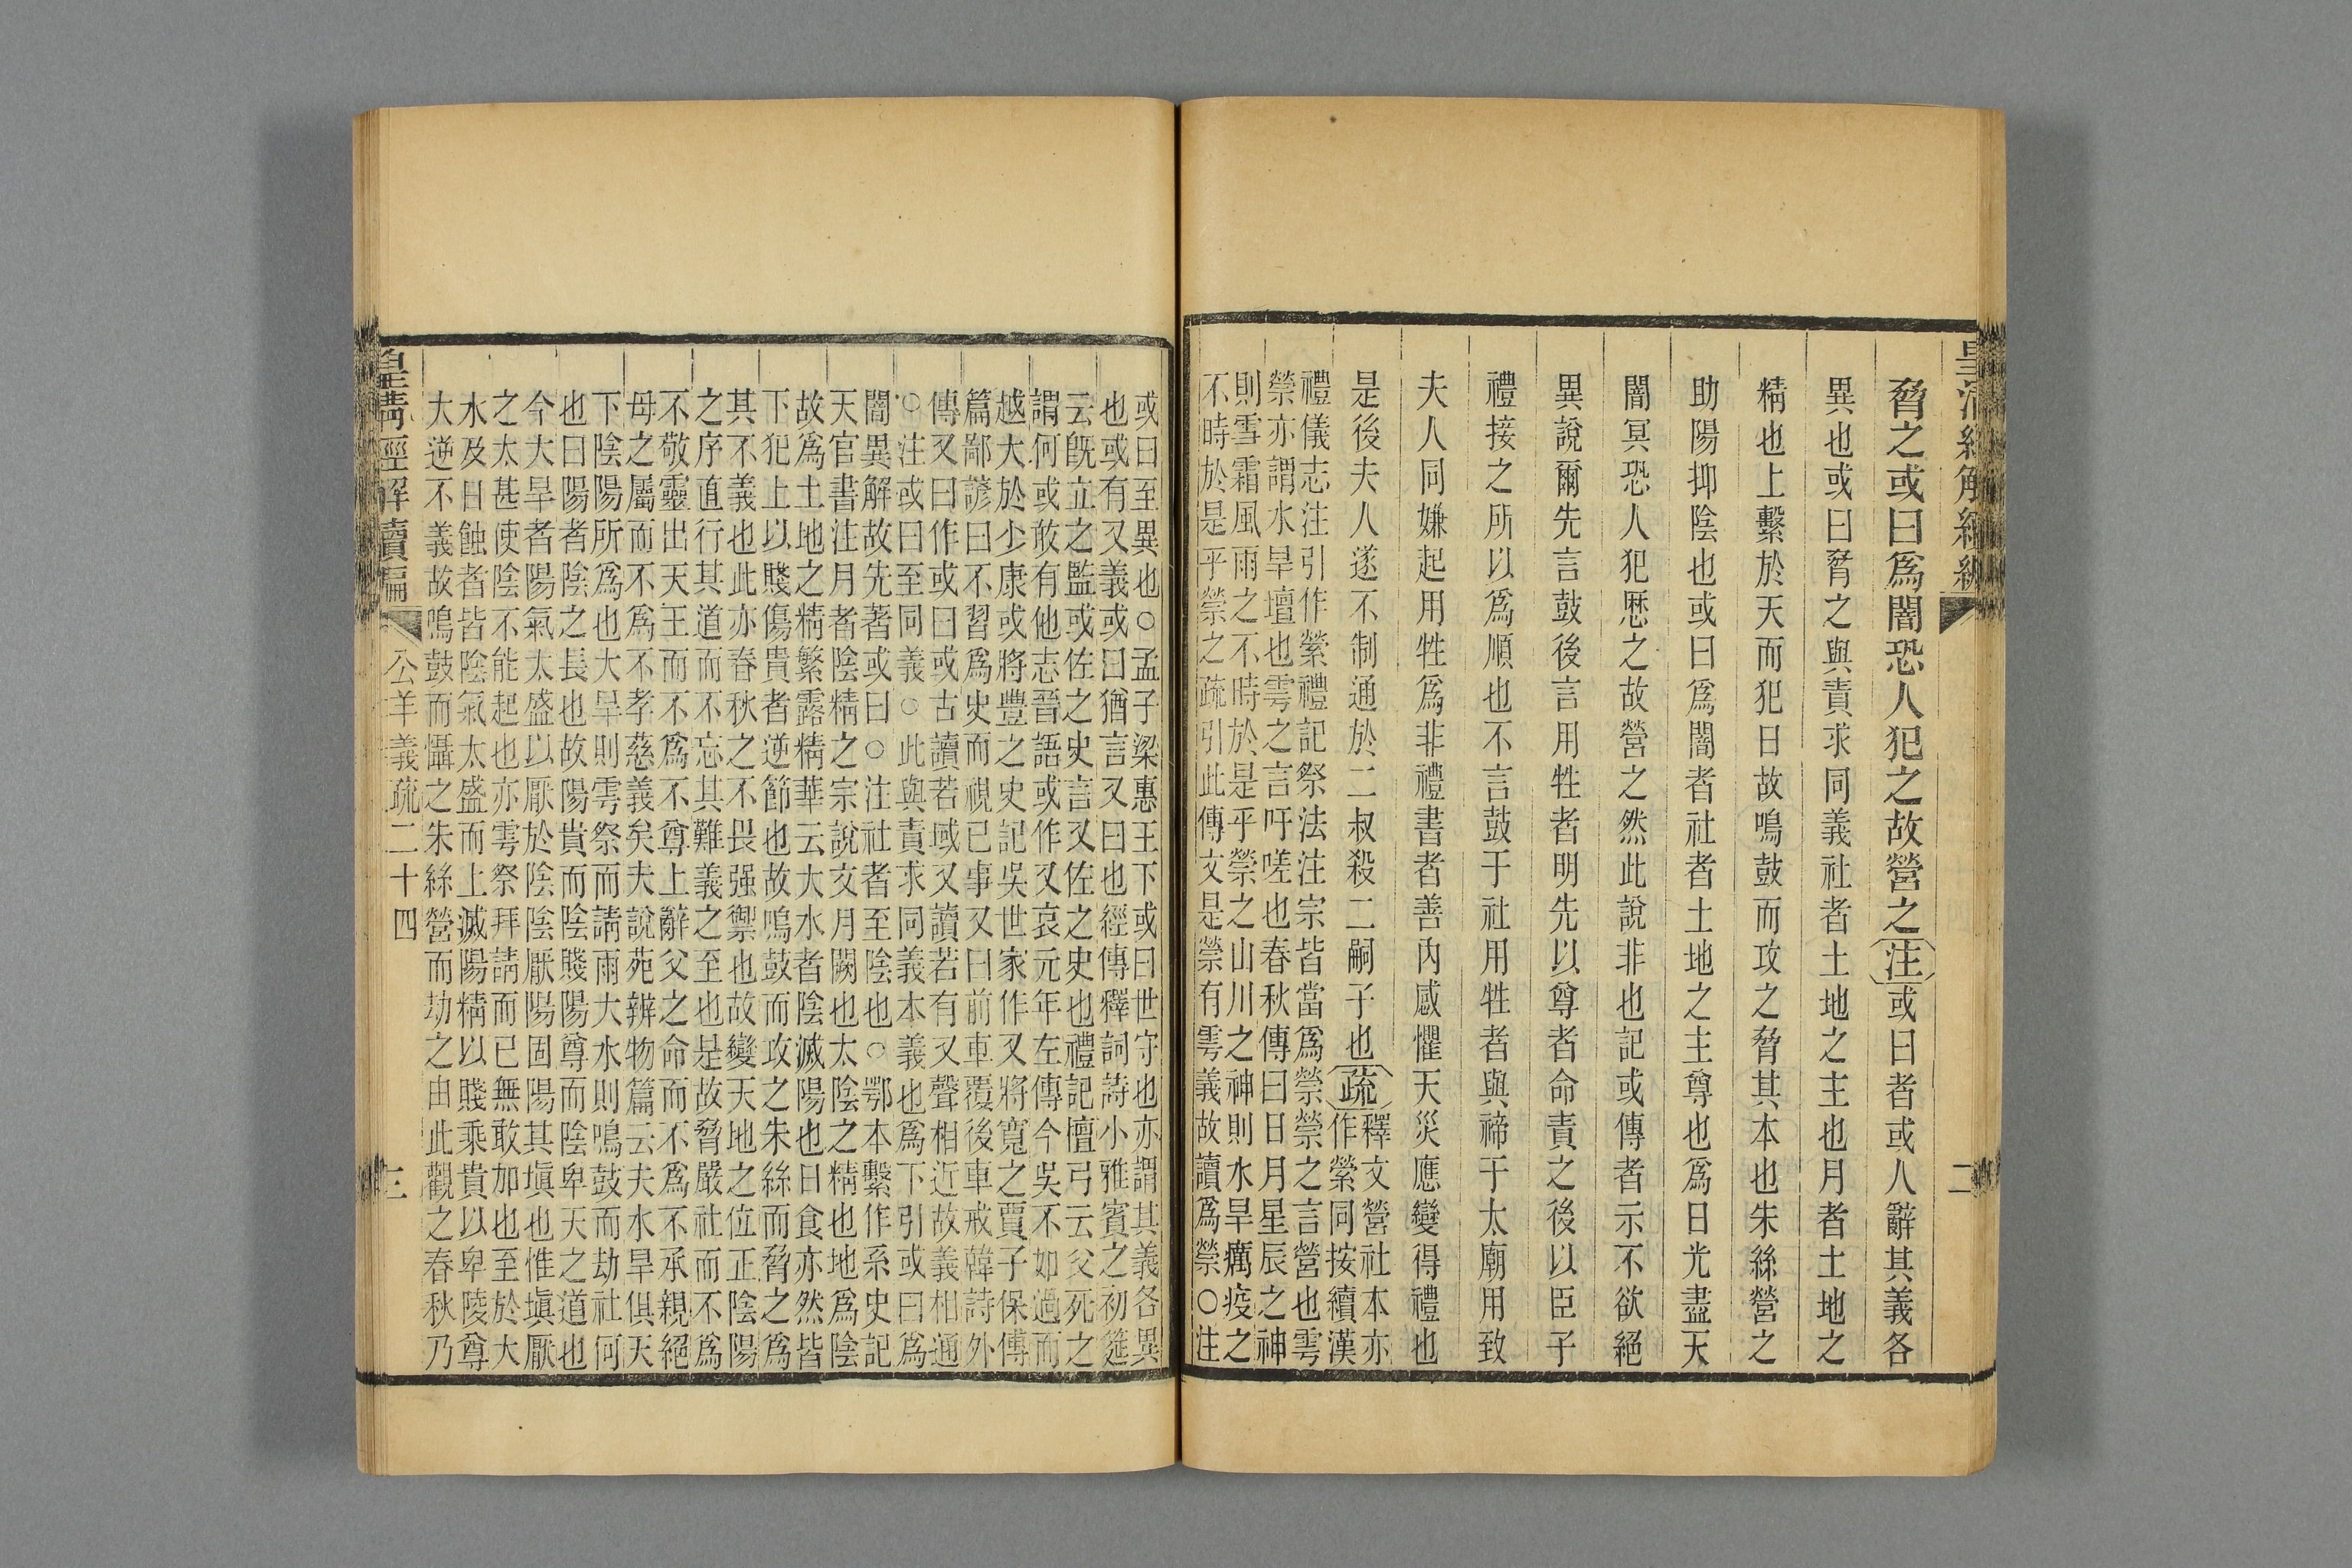 皇清經解續編
二
脅之或曰爲闇恐人犯之故營之注或曰者或人辭其義各
異也或曰脅之與責求同義社者土地之主也月者土地之
精也上繫於天而犯日故鳴鼓而攻之脅其本也朱絲營之
助陽抑陰也或曰爲闇者社者土地之主尊也爲日光盡天
闇冥恐人犯厯之故營之然此說非也記或傳者示不欲絕
異說爾先言鼓後言用牲者明先以尊者命責之後以臣子
禮接之所以爲順也不言鼓于社用牲者與禘于太廟用致
夫人同嫌起用牲爲非禮書者善內感懼天災應變得禮也
是後夫人遂不制通於二叔殺二嗣子也疏釋文營社本亦
作縈同按續漢
禮儀志注引作縈禮記祭法注宗皆當爲禜禜之言營也雩
禜亦謂水旱壇也雩之言吁嗟也春秋傳曰日月星辰之神
則雪霜風雨之不時於是乎禜之山川之神則水旱癘疫之
不時於是乎禜之疏引此傳文是禜有雩義故讀爲禜○注
或曰至異也○孟子梁惠王下或曰世守也亦謂其義各異
也或有又義或曰猶言又曰也經傳釋詞詩小雅賓之初筵
云旣立之監或佐之史言又佐之史也禮記檀弓云父死之
謂何或敢有他志晉語或作又哀元年左傳今吳不如過而
越大於少康或將豐之史記吳世家作又將寬之賈子保傅
篇鄙諺曰不習爲史而視已事又曰前車覆後車戒韓詩外
傳又曰作或曰或古讀若域又讀若有又聲相近故義相通
○注或曰至同義○此與責求同義本義也爲下引或曰爲
闇異解故先著或曰○注社者至陰也○鄂本繫作系史記
天官書注月者陰精之宗說文月闕也太陰之精也地爲陰
故爲土地之精繁露精華云大水者陰滅陽也日食亦然皆
下犯上以賤傷貴者逆節也故鳴鼓而攻之朱絲而脅之爲
其不義也此亦春秋之不畏强禦也故變天地之位正陰陽
之序直行其道而不忘其難義之至也是故脅嚴社而不爲
不敬靈出天王而不爲不尊上辭父之命而不爲不承親絕
母之屬而不爲不孝慈義矣夫說苑辨物篇云夫水旱俱天
下陰陽所爲也大旱則雩祭而請雨大水則鳴鼓而劫社何
也曰陽者陰之長也故陽貴而陰賤陽尊而陰卑天之道也
今大旱者陽氣太盛以厭於陰陰厭陽固陽其塡也惟塡厭
之太甚使陰不能起也亦雩祭拜請而已無敢加也至於大
水及日蝕者皆陰氣太盛而上滅陽精以賤乘貴以卑陵尊
大逆不義故鳴鼓而懾之朱絲營而劫之由此觀之春秋乃
皇淸經解續編
公羊義疏二十四
三